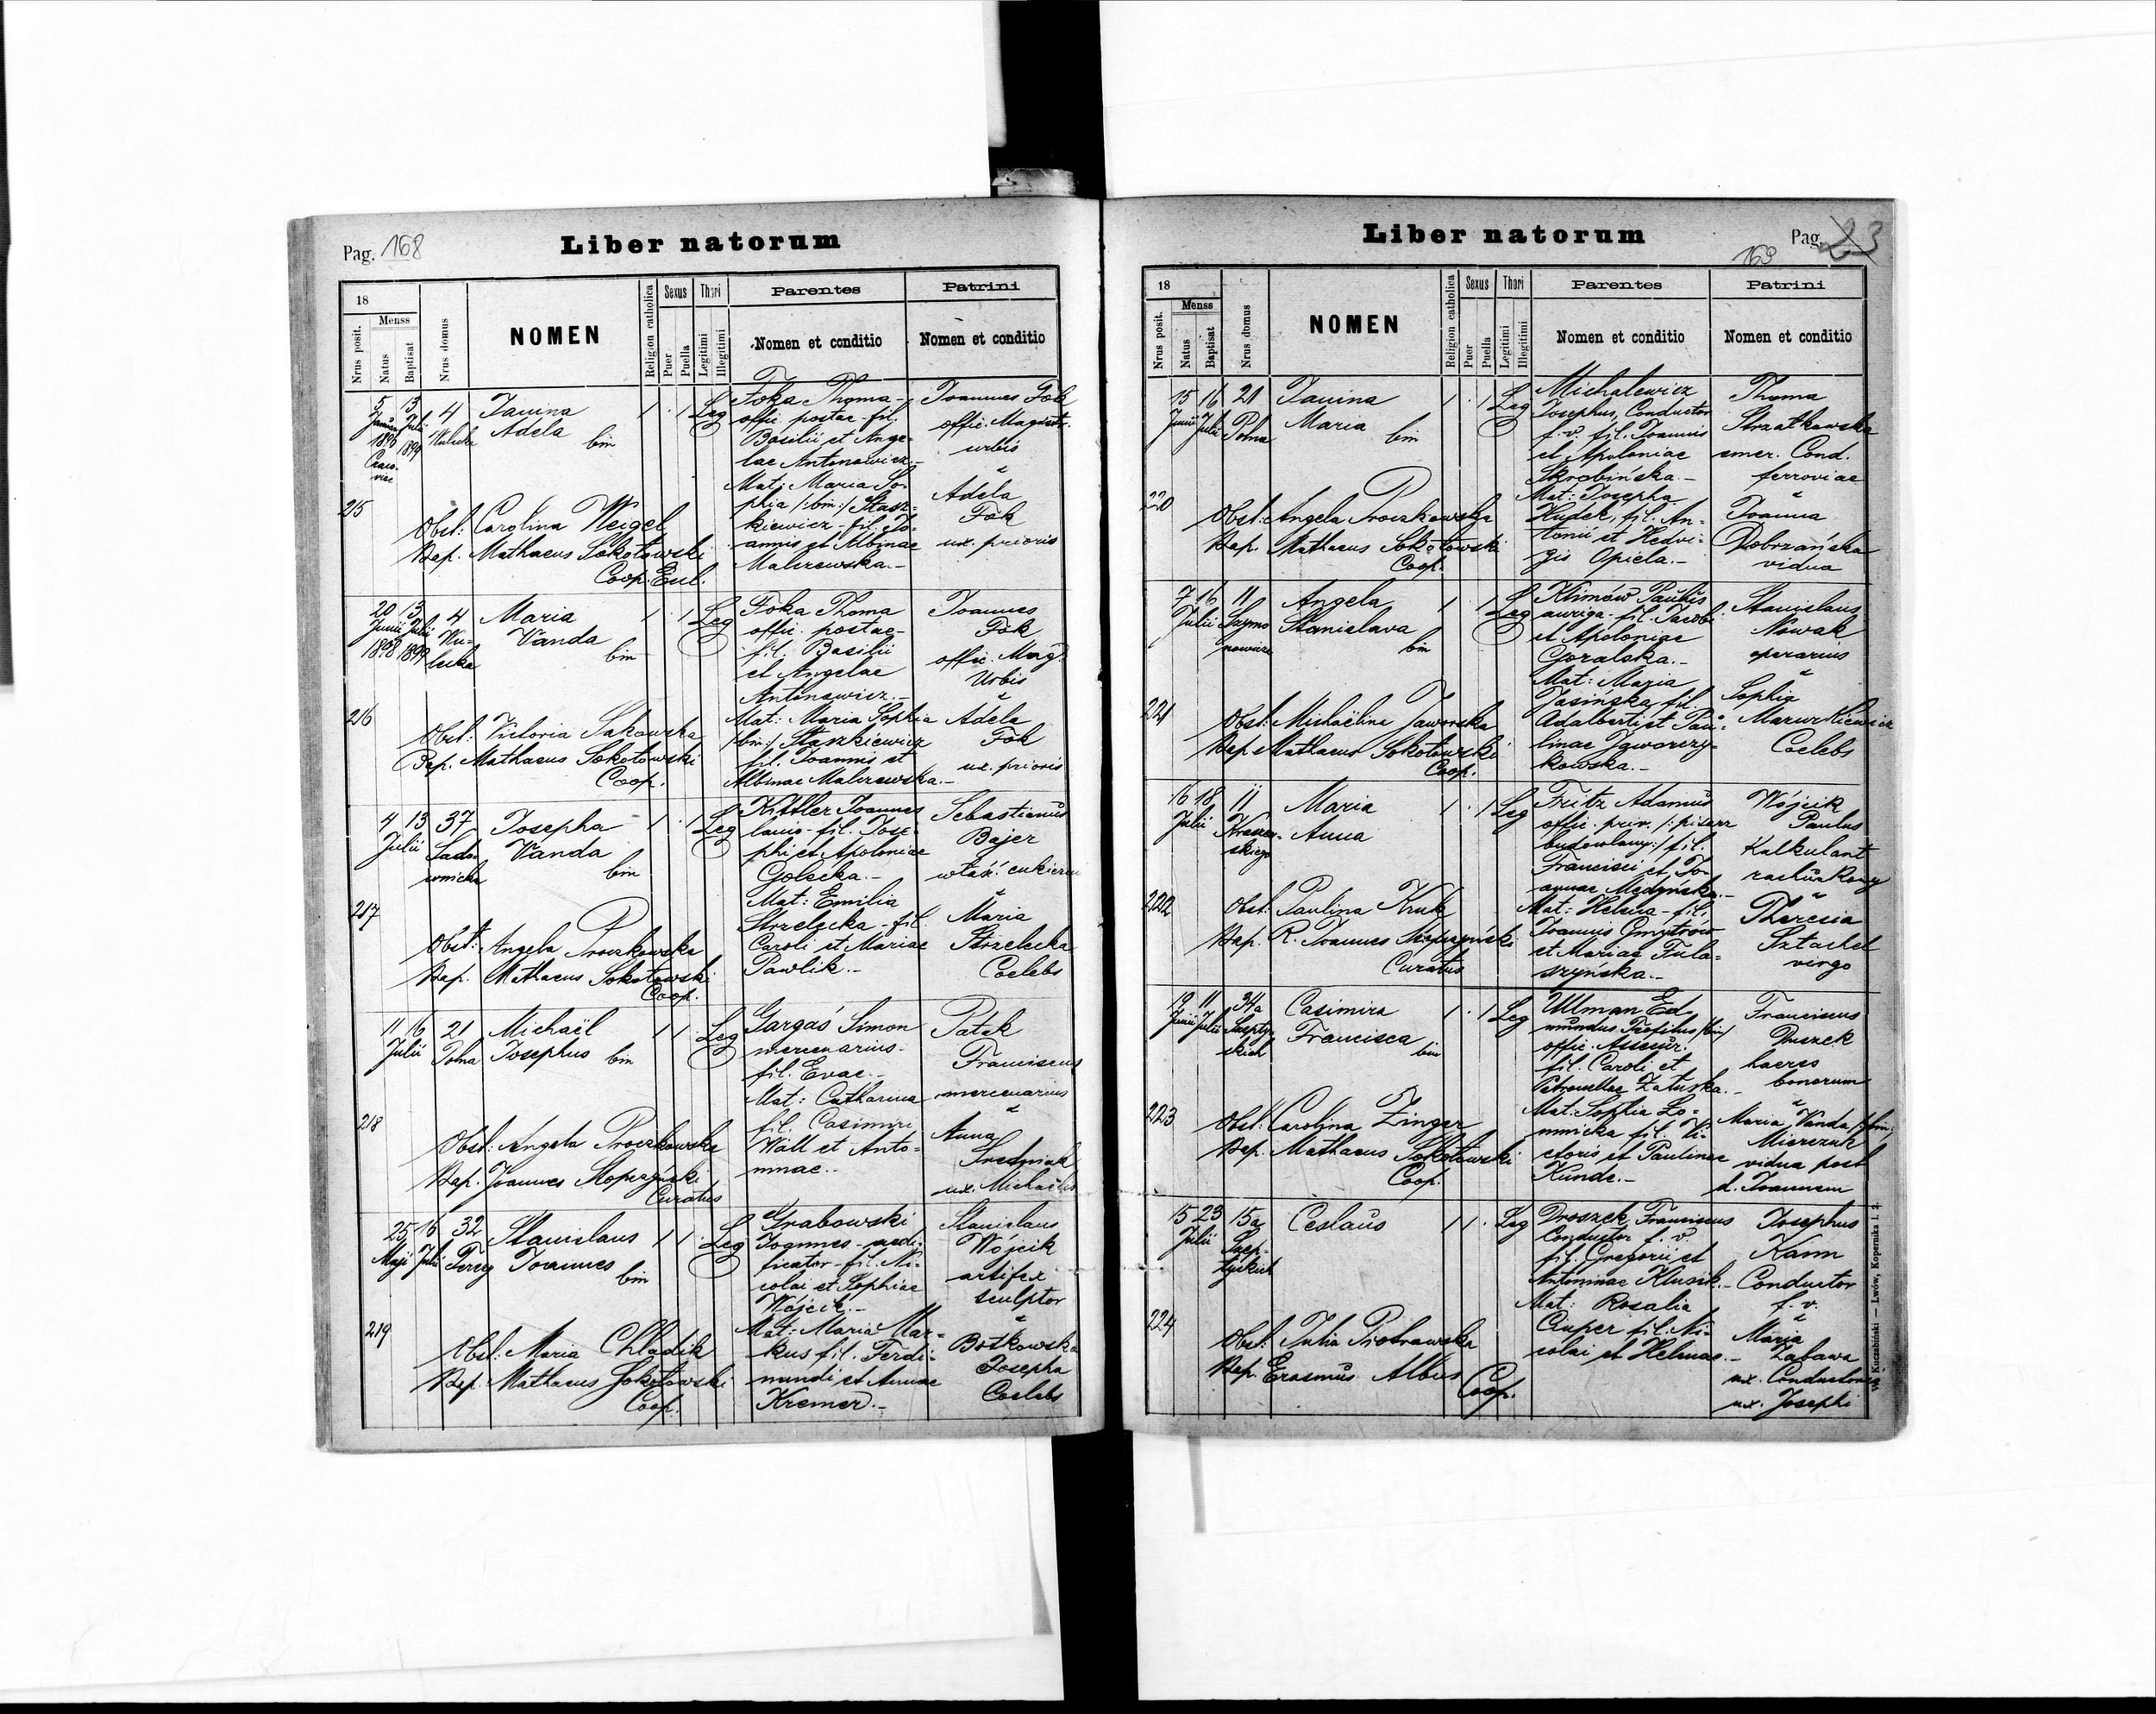 Pag. 168
Liber natorum
18
Nrus posit.
Menss
Natus
Baptisat
Nrus domus
NOMEN
Religion catholica
Sexus
Puer
Puella
Thori
Legitimi
Illegitimi
Parentes
Nomen et conditio
Patrini
Nomen et conditio
215
5 13 4
Julii
1899
Janina
Adela
bin
1 . 1 Leg
Obst: Carolina Weigel
Bap. Mathaeus Sokołowski
Coop. Eccl.
Foka Thoma -
offic. postae - fil.
Basilii et Ange-
lae Antonowicz.-
Mat: Maria So-
phia /:bin:/ Stasz-
kiewicz - fil. Jo-
annis et Albinae
Malczewska.-
Joannes Fok
offic. Magistr.
urbis
Adela
Fok
ux. prioris
216
20 13 4
Junii Julii Wu-
1898 1899 lecka
Maria
Vanda
bin
1 . 1 Leg
Obst: Victoria Sakowska
Bap. Mathaeus Sokołowski
Coop.
Foka Thoma
offic. postae -
fil. Basilii
et Angelae
Antonowicz.-
Mat: Maria Sophia
/bin:/ Staszkiewicz
fil. Joannis et
Albinae Malczewska.-
Joannes
Fok
offic. Mag.
Urbis
Adela
Fok
ux. prioris
217
4 13 37
Julii Sado-
wnicka
Josepha
Vanda
bin
1 . 1 Leg
Obst: Angela Proczkowska
Bap. Mathaeus Sokołowski
Coop.
Kittler Joannes
lanio - fil. Jose-
phi et Apoloniae
Golecka.-
Mat: Emilia
Strzelecka - fil.
Caroli et Mariae
Pawlik.-
Sebastianus
Bajer
właś. cukierni
Maria
Strzelecka
Coelebs
218
11 16 21
Julii Polna
Michaël
Josephus bin
1 1 . Leg
Obst: Angela Proczkowska
Bap. Joannes
Curatus
Gargaś Simon
mercenarius -
fil. Evae.-
Mat: Catharina
fil. Casimiri
Wall et Anto-
ninae.-
Patek
Franciscus
mercenarius
Anna
Średniak
ux. Michaëlis
219
25 16 32
Maji Julii
Stanislaus
Joannes
bin
1 1 . Leg
Obst: Maria Chladik
Bap. Mathaeus Sokołowski
Coop.
Grabowski
Joannes - aedi-
ficator - fil. Ni-
colai et Sophiae
Wójcik.-
Mat: Maria Mar-
kus fil. Ferdi-
nandi et Annae
Kremer.-
Stanislaus
Wójcik
artifex
sculptor
Josepha
Coelebs
Liber natorum
169 Pag. 23
18
Nrus posit.
Menss
Natus
Baptisat
Nrus domus
NOMEN
Religion catholica
Sexus
Puer
Puella
Thori
Legitimi
Illegitimi
Parentes
Nomen et conditio
Patrini
Nomen et conditio
220
15 16 21
Junii Julii Polna
Janina
Maria
bin
1 . 1 Leg
Obst: Angela Proczkowska
Bap. Mathaeus Sokołowski
Coop.
Michalewicz
Josephus, Conductor
f. v. fil. Joannis
et Apoloniae
Skrobińska.-
Mat: Josepha
Hudek, fil. An-
tonii et Hedvi-
gis Opiela.-
Thoma
Strzałkowska
emer. Cond.
ferroviae
Joanna
Dobrzańska
vidua
221
7 16 11
Julii Szymo
nowicza
Angela
Stanislava
bin
1 . 1 Leg
Obst: Michaëlina Jaworska
Bap. Mathaeus Sokołowski
Coop.
Klimów Paulus
auriga - fil. Jacobi
et Apoloniae
Goralska.-
Mat: Maria
Jasińska, fil.
Adalberti et Pau-
linae Jaworczy-
kowska.-
Stanislaus
Nowak
operarius
Sophia
Mazurkiewicz
Coelebs
222
16 18 11
Julii Kraszew-
skiego
Maria
Anna
1 . 1 Leg
Obst: Paulina Kruk
Bap. R. Joannes
Curatus
Fritz Adamus
offic. priv. /:pisarz
budowlany:/ fil.
Francisci et Jo-
annae Medyńska.-
Mat: Helena - fil.
Joannis Gmytrów
et Mariae Fula-
szyńska.-
Wójcik
Paulus
Kalkulant
rachunkowy
Theresia
Sztachel
virgo
223
12 11 34a
Junii Julii Szepty-
ckich
Casimira
Francisca
bin
1 . 1 Leg
Obst: Carolina Zinger
Bap. Mathaeus Sokołowski
Coop.
Ullman Ed-
mundus Teofilus /bin/
offic. Assecur.
fil. Caroli et
Petronellae Załuska.-
Mat: Sophia Ło-
mnicka fil. Vi-
ctoris et Paulinae
Kunde.-
Franciscus
Duszek
haeres
bonorum
Maria Vanda /:bin:/
Mierczuk
vidua post
d. Joannem
224
15 23 15a
Julii Szep-
tyckich
Ceslaus
1 1 . Leg
Obst: Julia Piotrowska
Bap. Erasmus Albus
Coop.
Droszek Franciscus
Conductor f. v.
fil. Gregorii et
Antoninae Klusik.-
Mat: Rosalia
Ciuper fil. Ni-
colai et Helenae.-
Josephus
Kann
Conductor
f. v.
Maria
Zabawa
ux. Conductoris
ux. Josephi
Kuczabiński — Lwów, Kopernika l. 2.